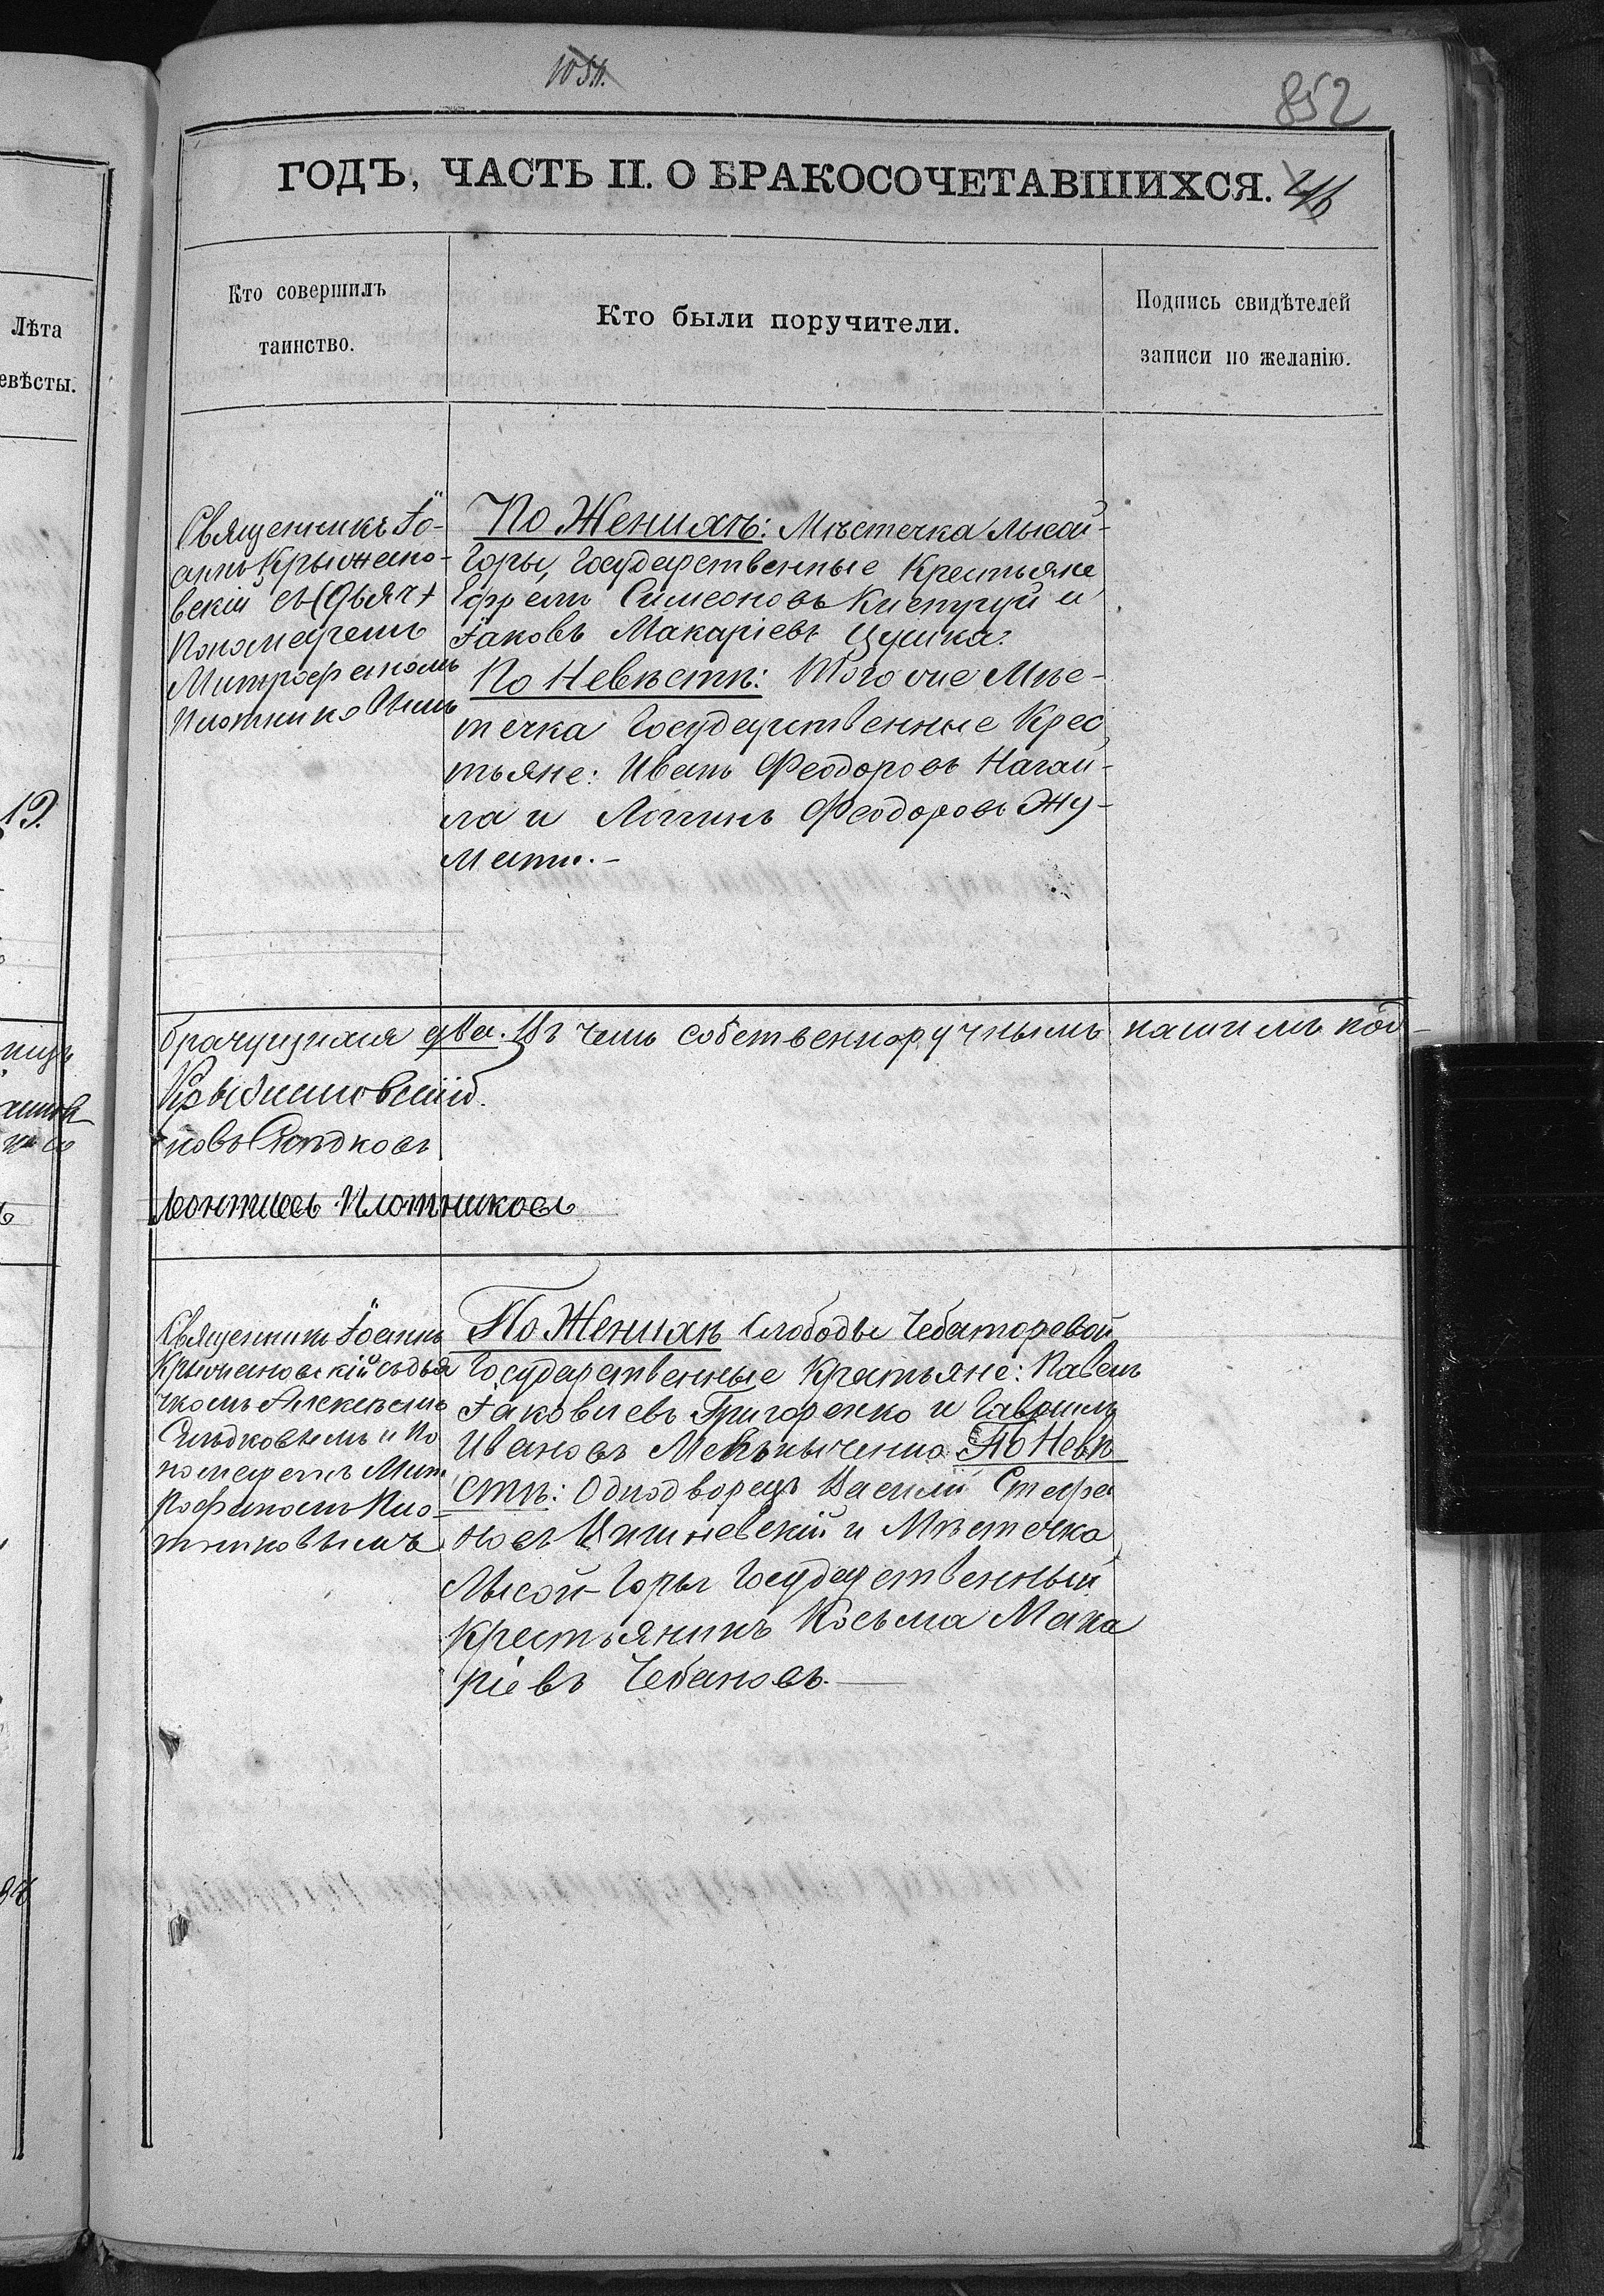 1054.
852
ГОДЪ, ЧАСТЬ II. О БРАКОСОЧЕТАВШИХСЯ.
Лѣта
евѣсты.
Кто совершилъ
таинство.
Кто были поручители.
Подпись свидѣтелей
записи по желанію.
19.
Священникъ Іо-
аннъ Крыжано-
вскій съ (Дьяч)
Пономаремъ
Митрофаномъ
Плотниковымъ
По Женихѣ: Мѣстечка Лысой-
Горы, Государственные Крестьяне
Симеоновъ и
Іаковъ Макаріевъ Цушка.
По Невѣстѣ: Того же Мѣс-
течка Государственные Крес
тьяне: Иванъ Феодоровъ Нагай-
ла и Логгинъ Феодоровъ
брачущихся два. Въ чемъ собственноручнымъ нашимъ под-
Крыжановскій.
ковъ
Леонтіевъ Плотниковъ
Священникъ Іоаннъ
Крыжановскій съ дья
чкомъ Алексѣемъ
и По
номаремъ Мит
рофаномъ Пло-
тниковымъ
По Женихѣ Слободы Чебаторевой
Государственные Крестьяне: Павелъ
Іаковлевъ Григоренко и Гавриилъ
Ивановъ По Невѣ
стѣ: Однодворецъ Василій Стефа
новъ Вишневскій и Мѣстечка
Лысой-Горы Государственный
Крестьянинъ Косьма Мака
ріевъ Чебановъ.